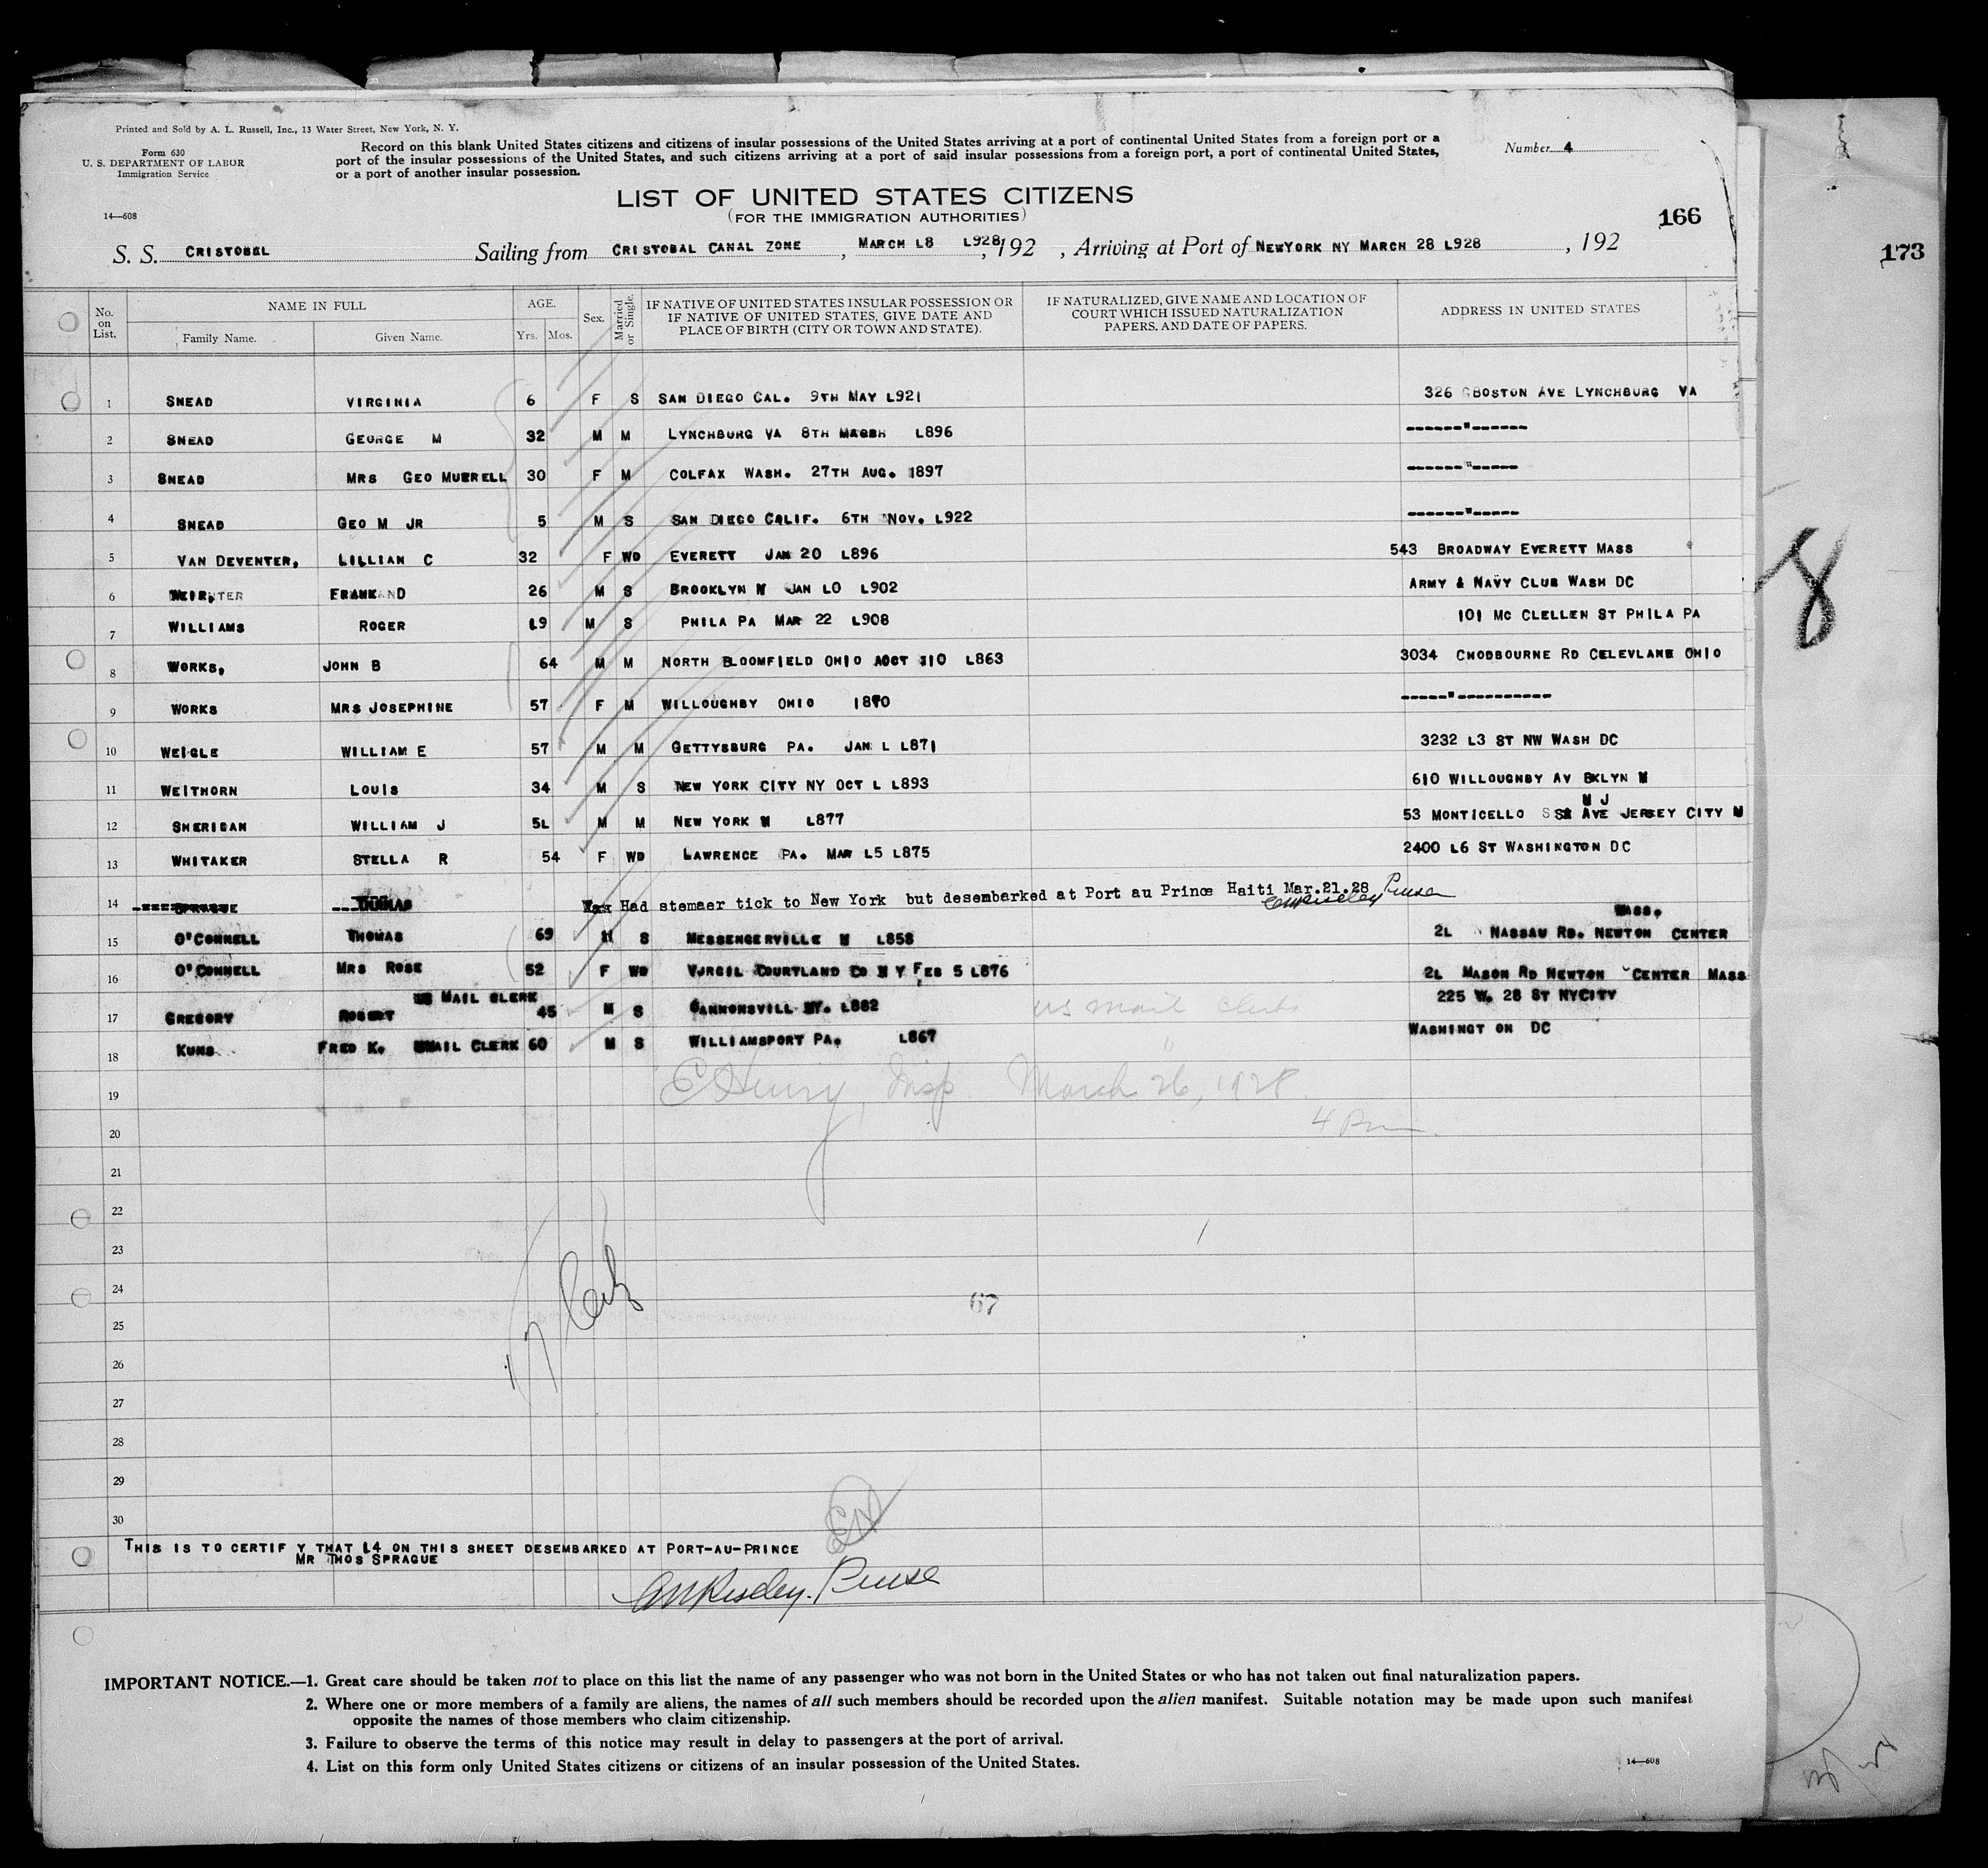 Printed and Sold by A. L. Russell, Inc., 13 Water Street, New York, N. Y.
Form 630
U. S. DEPARTMENT OF LABOR
Immigration Service
14—608
Record on this blank United States citizens and citizens of insular possessions of the United States arriving at a port of continental United States from a foreign port or a
port of the insular possessions of the United States, and such citizens arriving at a port of said insular possessions from a foreign port, a port of continental United States,
or a port of another insular possession.
Number 4
LIST OF UNITED STATES CITIZENS
(FOR THE IMMIGRATION AUTHORITIES)
166
173
S. S. CRISTOBEL Sailing from CRISTOBAL CANAL ZONE , MARCH L8 L928, 192 , Arriving at Port of NEWYORK NY MARCH 28 L928 , 192
No. on List. NAME IN FULL Family Name. Given Name. AGE. Yrs. Mos. Sex. Married or Single.
IF NATIVE OF UNITED STATES INSULAR POSSESSION OR
IF NATIVE OF UNITED STATES, GIVE DATE AND
PLACE OF BIRTH (CITY OR TOWN AND STATE).
IF NATURALIZED, GIVE NAME AND LOCATION OF
COURT WHICH ISSUED NATURALIZATION
PAPERS, AND DATE OF PAPERS.
ADDRESS IN UNITED STATES
1 SNEAD VIRGINIA 6 F S SAN DIEGO CAL. 9TH MAY L921 326 BOSTON AVE LYNCHBURG VA
2 SNEAD GEORGE M 32 M M LYNCHBURG VA 8TH L896 ------"------
3 SNEAD MRS GEO MURRELL 30 F M COLFAX WASH. 27TH AUG. 1897 ------"-----
4 SNEAD GEO M JR 5 M S SAN DIEGO CALIF. 6TH NOV. L922 ------"-----
5 VAN DEVENTER, LILLIAN C 32 F WD EVERETT JAN 20 L896 543 BROADWAY EVERETT MASS
6 WEIR, FRANK D 26 M S BROOKLYN N JAN L0 L902 ARMY & NAVY CLUB WASH DC
7 WILLIAMS ROGER L9 M S PHILA PA MAR 22 L908 101 MC CLELLEN ST PHILA PA
8 WORKS, JOHN B 64 M M NORTH BLOOMFIELD OHIO OCT 10 L863 3034 CHODBOURNE RD CELEVLAND OHIO
9 WORKS MRS JOSEPHINE 57 F M WILLOUGHBY OHIO 1870 -----"----------
10 WEIGLE WILLIAM E 57 M M GETTYSBURG PA. JAN L L871 3232 L3 ST NW WASH DC
11 WEITHORN LOUIS 34 M S NEW YORK CITY NY OCT L L893 610 WILLOUGHBY AV BKLYN N
N J
12 SHERIDAN WILLIAM J 5L M M NEW YORK N L877 53 MONTICELLO AVE JERSEY CITY N
13 WHITAKER STELLA R 54 F WD LAWRENCE PA. MAR L5 L875 2400 L6 ST WASHINGTON DC
14 SPRAGUE THOMAS Had stemaer tick to New York but desembarked at Port au Prince Haiti Mar.21.28
MASS.
15 O'CONNELL THOMAS 69 M S MESSENGERVILLE N L858 2L NASSAU RD. NEWTON CENTER
16 O'CONNELL MRS ROSE 52 F WD VJRGIL COURTLAND CO N Y FEB 5 L876 2L MASON RD NEWTON CENTER MASS
US MAIL CLERK
17 GREGORY ROBERT 45 M S CANNONSVILL NY. L882 us mail clerk 225 W. 28 ST NYCITY
18 KUNS FRED K. MAIL CLERK 60 M S WILLIAMSPORT PA. L867 " WASHINGT ON DC
19 Insp. March 26, 1928.
20 4 Pm
21
22
23
24
67
25
26
27
28
29
30
THIS IS TO CERTIF Y THAT L4 ON THIS SHEET DESEMBARKED AT PORT-AU-PRINCE
MR THOS SPRAGUE
8
IMPORTANT NOTICE.—1. Great care should be taken not to place on this list the name of any passenger who was not born in the United States or who has not taken out final naturalization papers.
2. Where one or more members of a family are aliens, the names of all such members should be recorded upon the alien manifest. Suitable notation may be made upon such manifest
opposite the names of those members who claim citizenship.
3. Failure to observe the terms of this notice may result in delay to passengers at the port of arrival.
4. List on this form only United States citizens or citizens of an insular possession of the United States.
14—608